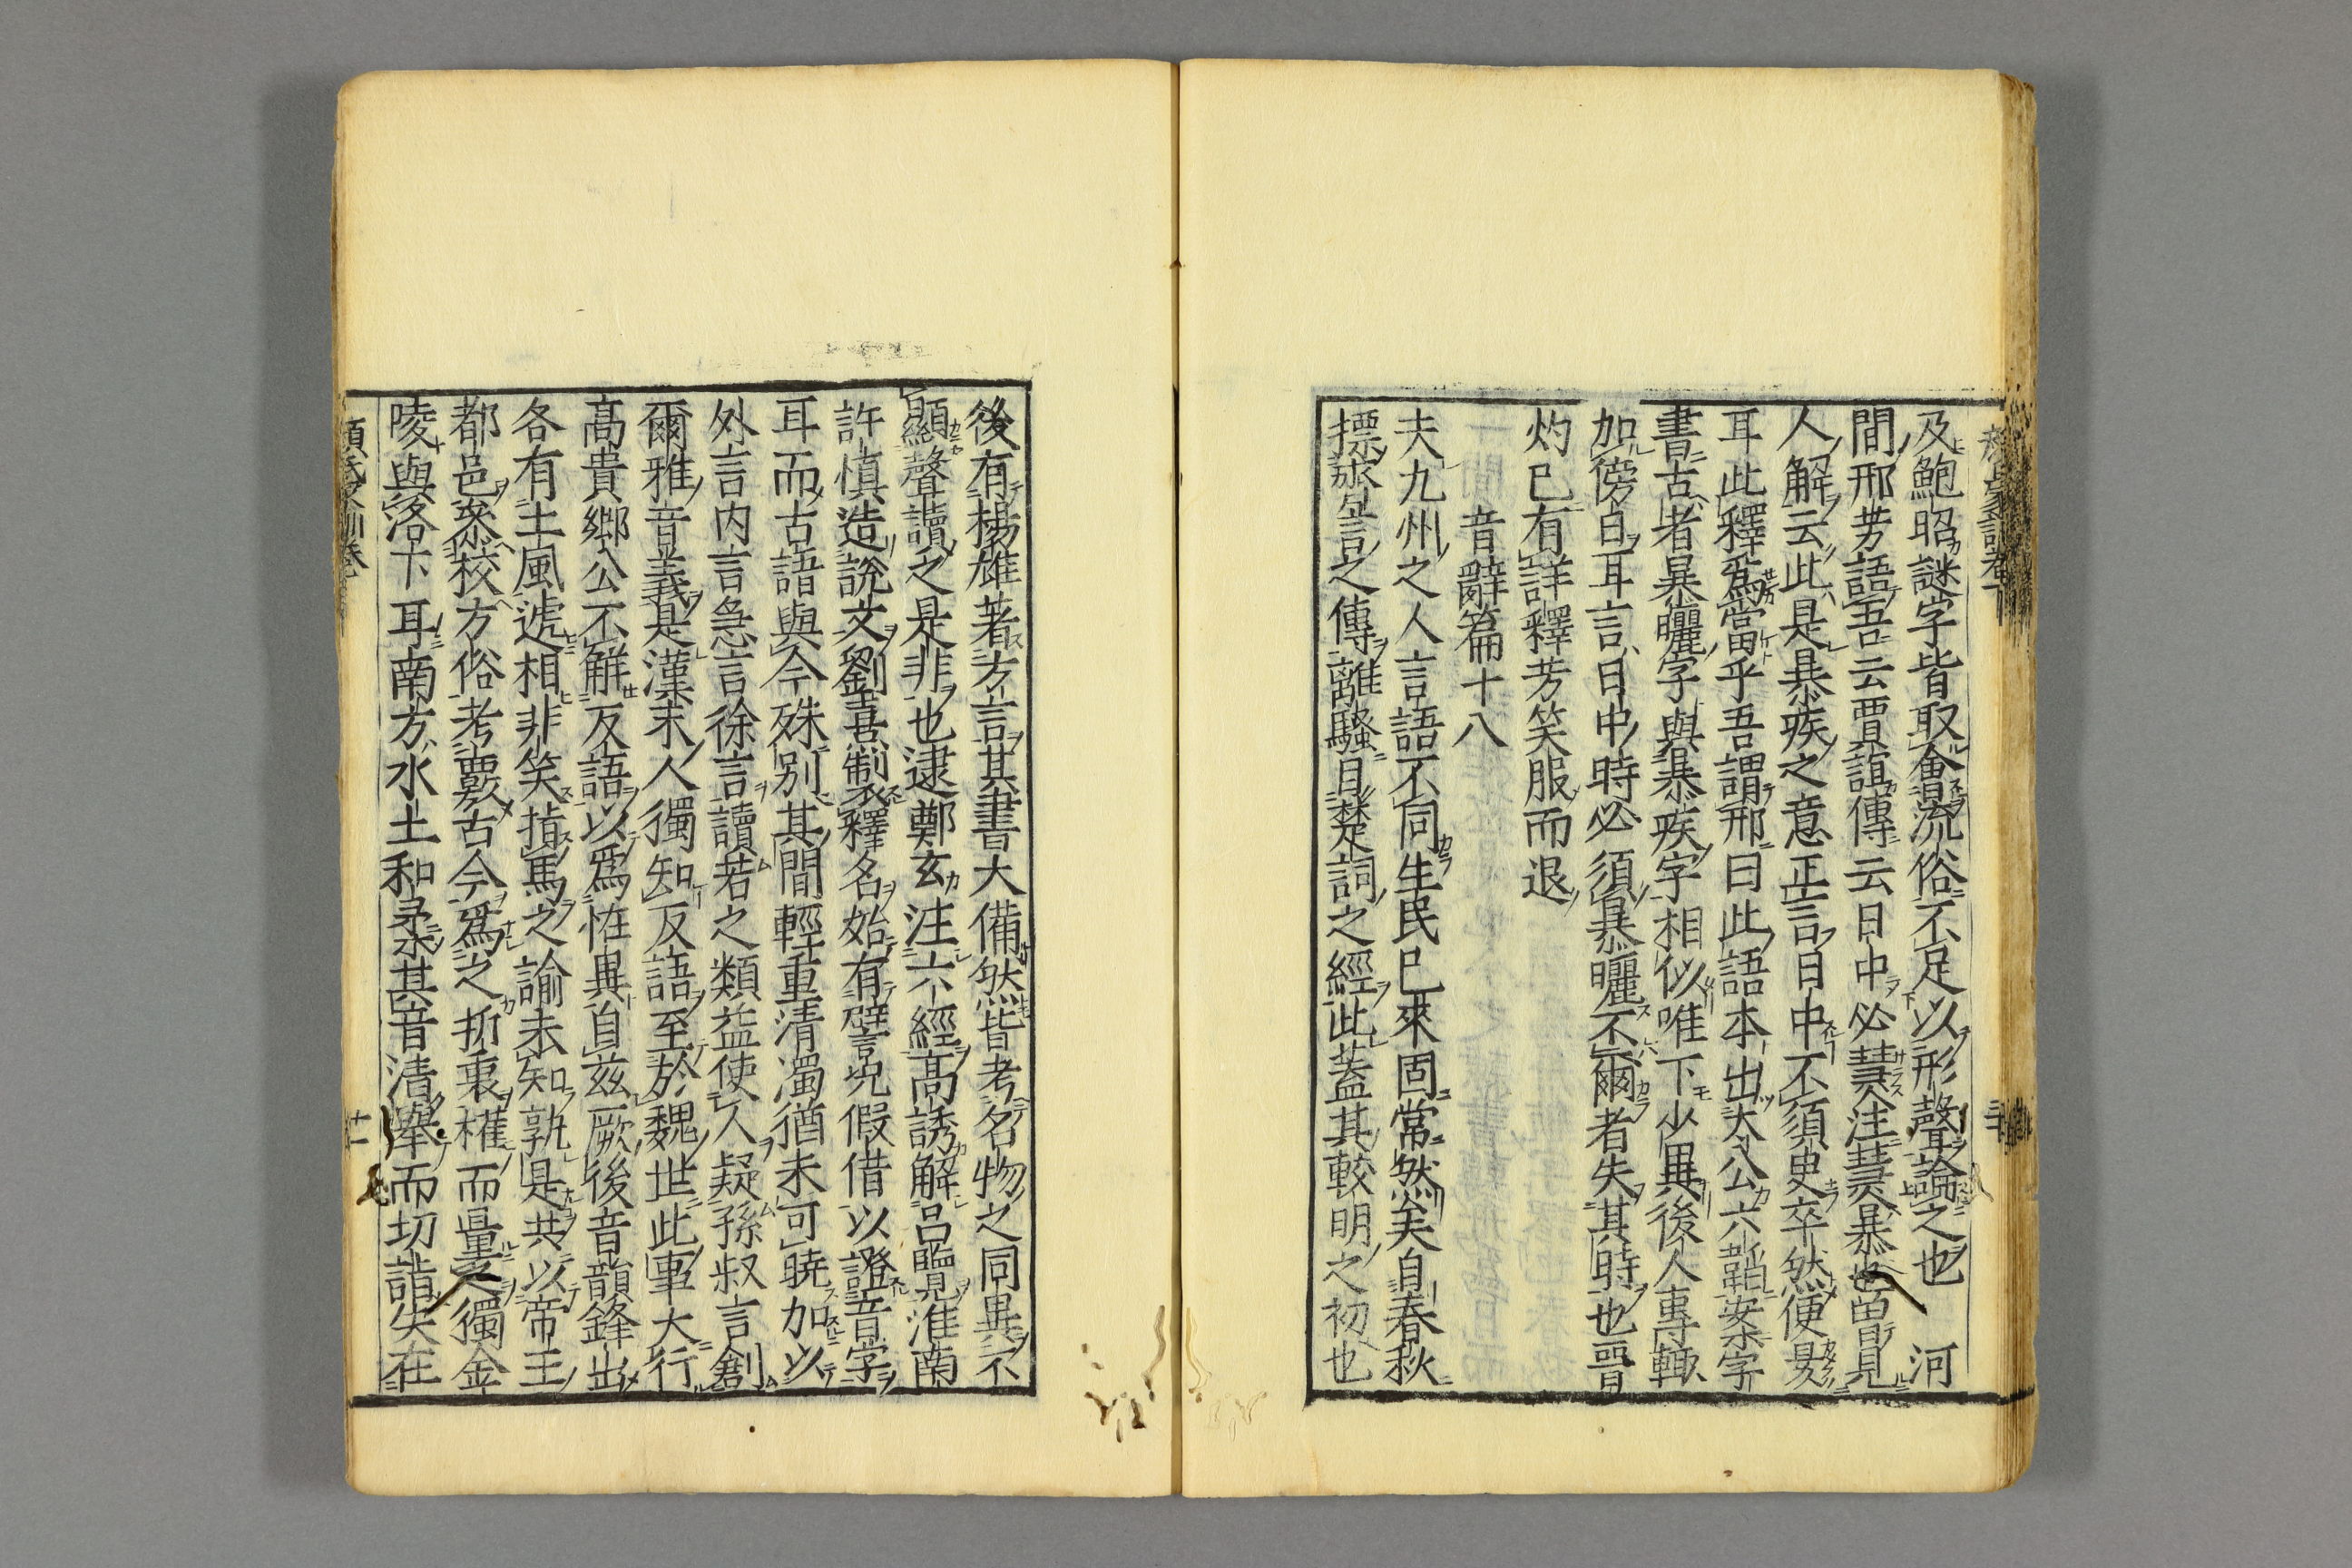 及鮑昭謎字皆取會流俗不足以形聲論之也　河
間邢芳語吾云賈誼傳云日中必㷉注㷉暴也曽見
人解云此是暴疾之意正言日中不須史卒然便昃
耳此釋爲當乎吾謂邢曰此語本出太公六韜案字
書古者暴曬字與暴疾字相似唯下少異後人專輙
加傍日耳言日中時必須暴曬不爾者失其時也晋
灼巳有詳釋芳笑服而退
音辭篇十八
夫九州之人言語不同生民巳來固常然矣自春秋
摽齊言之傳離騷目楚詞之經此蓋其較明之初也
後有楊雄著方言其書大備然皆考名物之同異不
顯聲讀之是非也逮鄭玄注六經高誘解呂覽淮南
許慎造說文劉熹製釋名始有譬況假借以證音字
耳而古語與今殊別其間輕重清濁猶未可曉加以
外言内言急言徐言讀若之類益使人疑孫叔言創
爾雅音義是漢末人獨知反語至於魏世此事大行
高貴鄉公不解反語以爲恠異自兹厥後音韻鋒出
各有土風遞相非笑指馬之諭未知孰是共以帝王
都邑叅校方俗考覈古今爲之折衷榷而量之獨金
陵與洛下耳南方水土和柔其音清舉而切詣失在